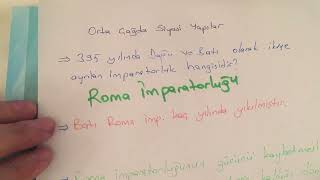 Orta Çağda Siyasi Yapılar
⇒ 395 yılında Doğu ve Batı olarak ikiye
ayrılan imparatorluk hangisidir?
Roma İmparatorluğu
⇒ Batı Roma imp. kaç yılında yıkılmıştır.
imparatorluğunun gücünü kaybetmesi